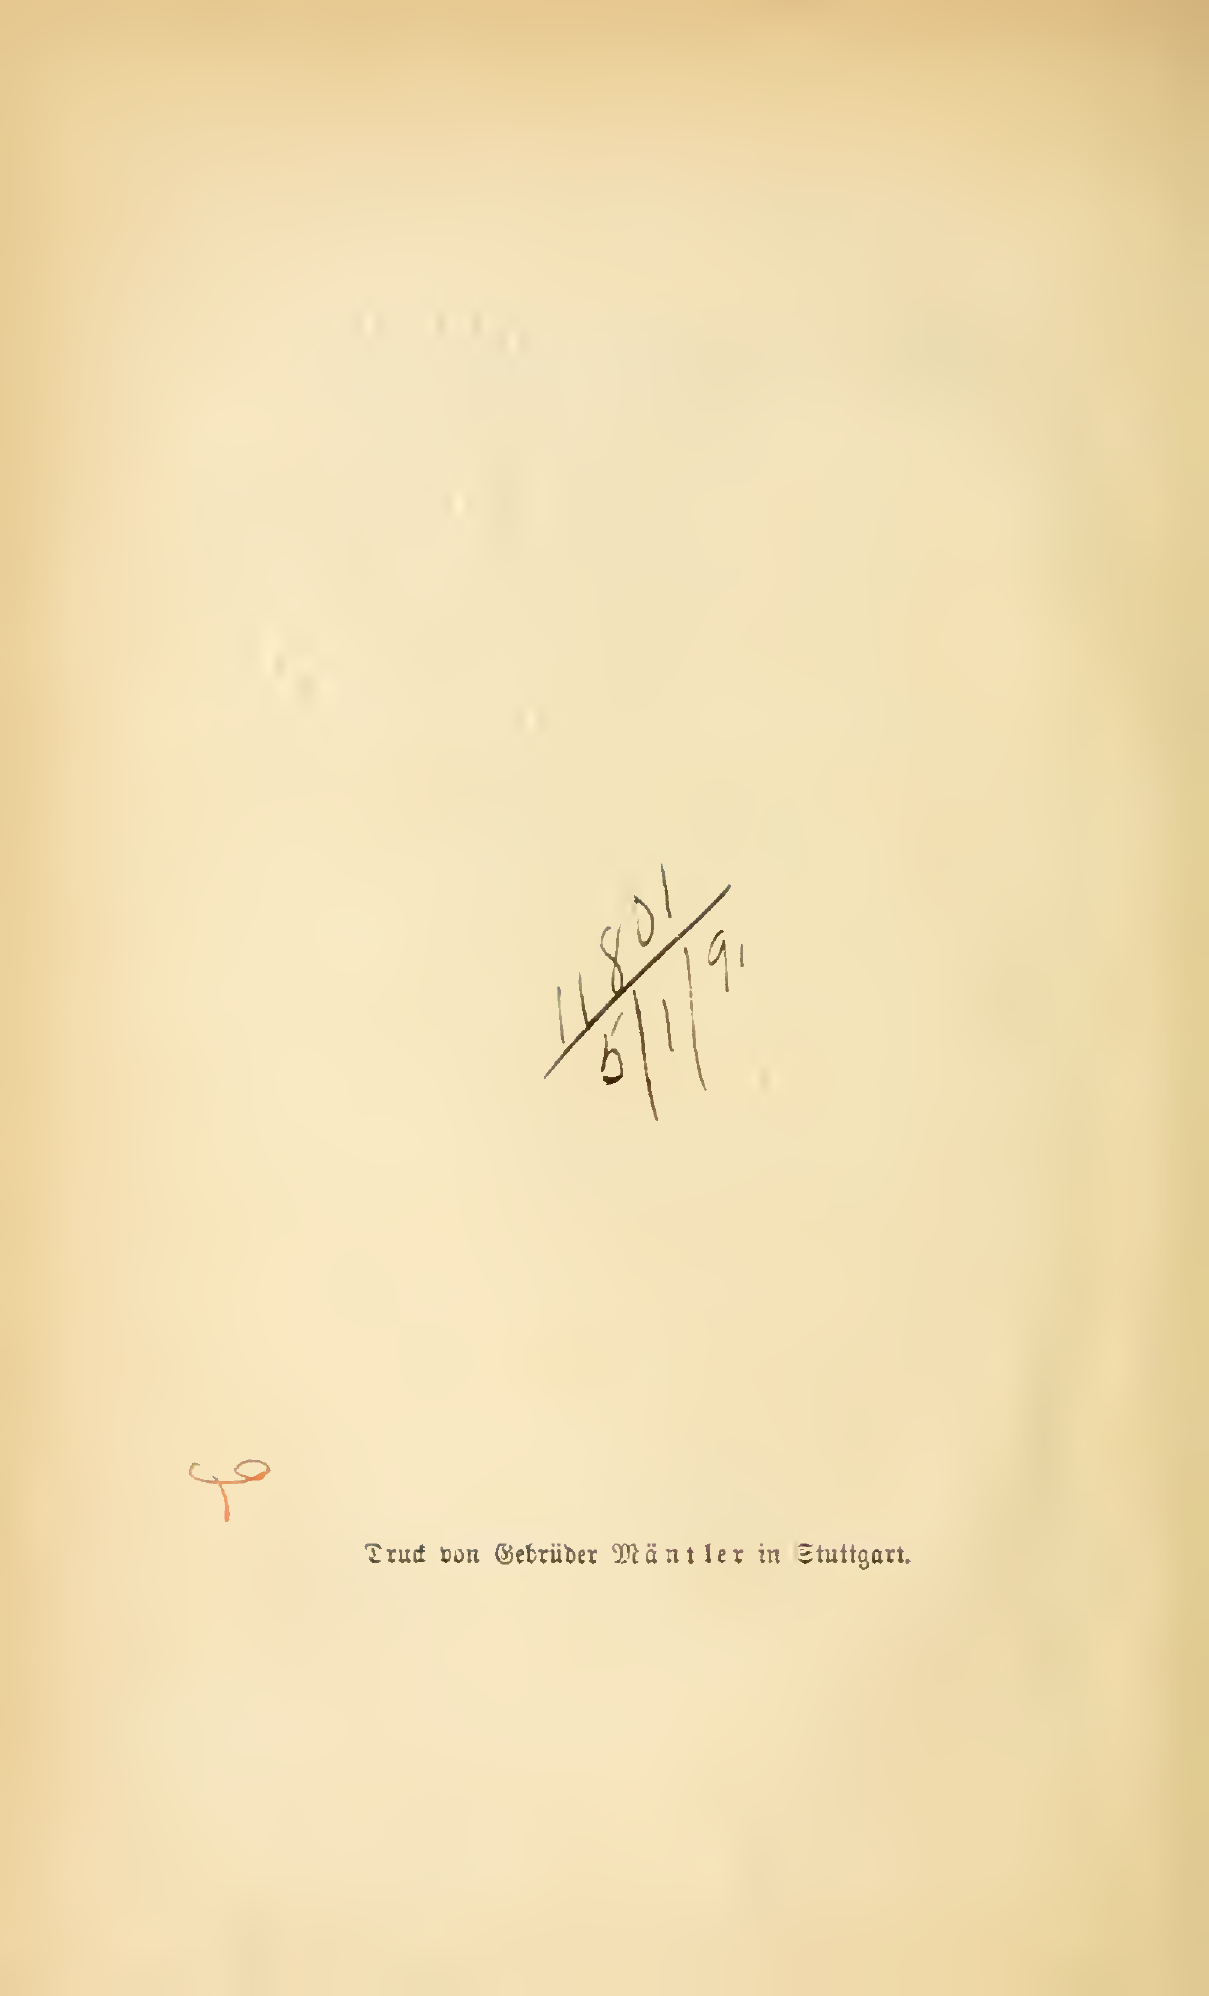 11801
5/1/91
Druck von Gebrüder Mäntler in Stuttgart.